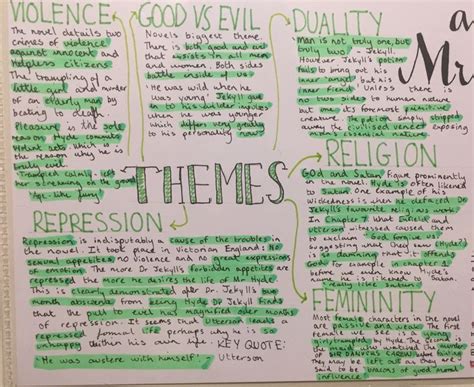 VIOLENCE
The novel details two
crimes of violence
against innocent and
helpless citizens.
The trampling of a
little girl and murder
of an elderly man by
beating to death.
Pleasure is the sole
reason Hyde commits
violent acts which is
the reason why he is
truly evil.
'Trampled calmly' left
her screaming on the ground
'Ape-like fury'
GOOD VS EVIL
Novels biggest theme.
There is both good and evil
that exists in all men
and women. Both sides
battle inside of us.
'He was wild when he
was young' Jekyll gave
in to his wilder impulses
when he was younger
which differ very greatly
to his personality now
DUALITY
'Man is not truly one, but
truly two' - Jekyll.
However Jekyll's potion
fails to bring out his
inner but his
inner fiend. Unless there is
no two sides to human nature
but one its foremost primitive
creature. The potion simply stripped
away the civilised veneer exposing
man's essential nature.
a
Mr
THEMES
RELIGION
God and Satan figure prominently
in the novel. Hyde is often likened
to Satan. One example of his
wickedness is when he defaced Dr
Jekyll's favourite religious work.
In Chapter 7 what Enfield and
Utterson witnessed caused them
to exclaim 'God forgive us'
suggesting what they saw (Hyde)
is so damning that it offends
God. For example in chapter 1
before we even know Hyde's
name he is likened to Satan
'really like Satan'
REPRESSION
Repression is indisputably a cause of the troubles in
that novel. It took place in Victorian England: no
sexual appetites, no violence and no great expressions
of emotion. The more Dr Jekyll's forbidden appetites are
repressed the more he desires the life of Mr Hyde.
This is clearly demonstrated after Dr Jekyll's two
month abstinence from being Hyde Dr Jekyll finds
that the pull to evil has magnified after months
of repression. It seems that Utterson leads a
repressed formical life perhaps why he is so
unhappy within his own life.
KEY QUOTE:
'He was austere with himself' - Utterson
FEMININITY
Most female characters in the novel
are passive and weak. The first
female we see is a young
girl trampled by Hyde. The second
is a maid who witnessed the murder
of SIR DANVERS CAREW before fainting
they may be left out as they are
said to be beacons of good moral
influence